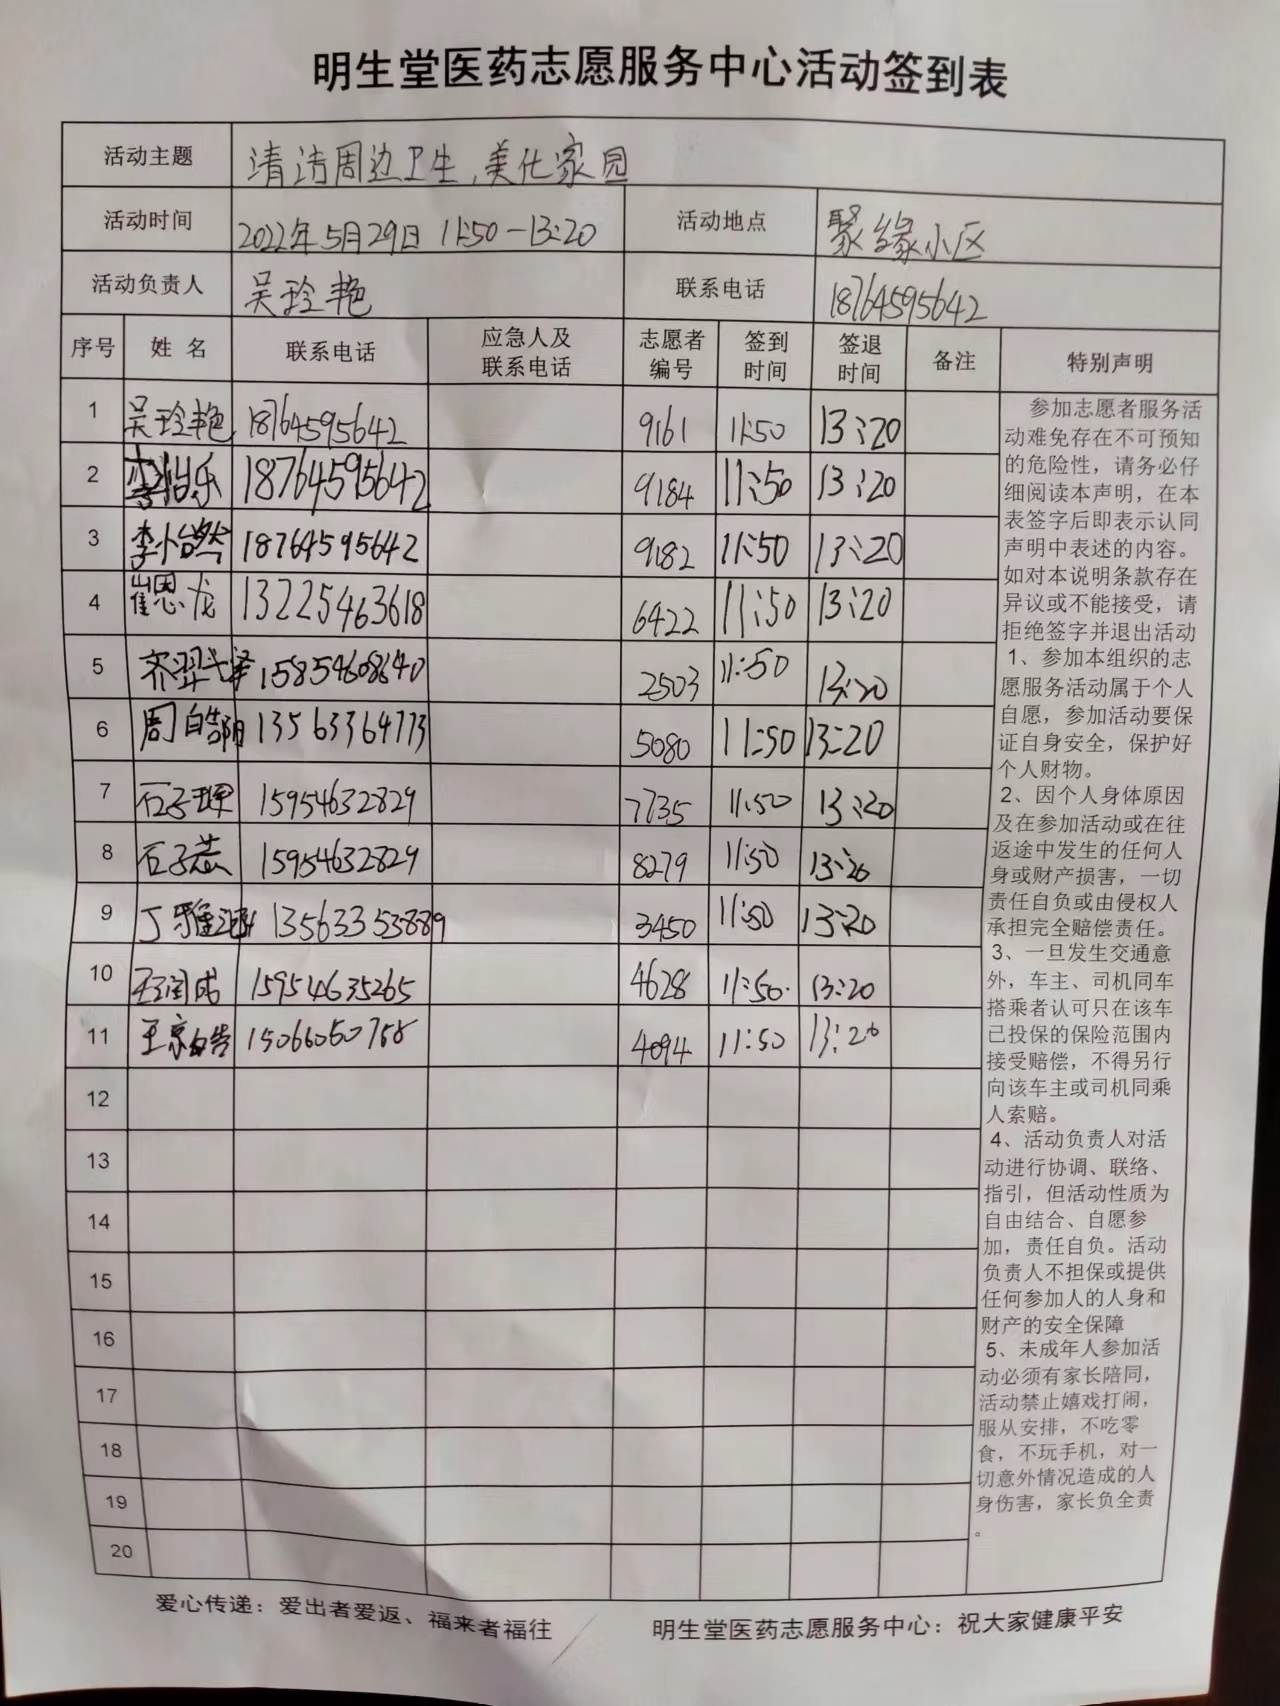 明生堂医药志愿服务中心活动签到表
活动主题 清洁周边卫生,美化家园
活动时间 2022年5月29日 11:50-13:20 活动地点 聚缘小区
活动负责人 吴玲艳 联系电话 18764595642
序号 姓名 联系电话 应急人及联系电话 志愿者编号 签到时间 签退时间 备注 特别声明
1 吴玲艳 18764595642 9161 11:50 13:20
2 李怡乐 18764595642 9184 11:50 13:20
3 李怡然 18764595642 9182 11:50 13:20
4 崔恩龙 13225463618 6422 11:50 13:20
5 齐羿 15854608640 2503 11:50 13:20
6 周皓阳 13563364773 5080 11:50 13:20
7 石子琪 15954632829 7735 11:50 13:20
8 石子 15954632829 8279 11:50 13:20
9 丁雅涵 3450 11:50 13:20
10 王润成 15954635265 4628 11:50 13:20
11 王京皓 4094 11:50 13:20
12
13
14
15
16
17
18
19
20
参加志愿者服务活
动难免存在不可预知
的危险性，请务必仔
细阅读本声明，在本
表签字后即表示认同
声明中表述的内容。
如对本说明条款存在
异议或不能接受，请
拒绝签字并退出活动
1、参加本组织的志
愿服务活动属于个人
自愿，参加活动要保
证自身安全，保护好
个人财物。
2、因个人身体原因
及在参加活动或在往
返途中发生的任何人
身或财产损害，一切
责任自负或由侵权人
承担完全赔偿责任。
3、一旦发生交通意
外，车主、司机同车
搭乘者认可只在该车
已投保的保险范围内
接受赔偿，不得另行
向该车主或司机同乘
人索赔。
4、活动负责人对活
动进行协调、联络、
指引，但活动性质为
自由结合、自愿参
加，责任自负。活动
负责人不担保或提供
任何参加人的人身和
财产的安全保障
5、未成年人参加活
动必须有家长陪同，
活动禁止嬉戏打闹，
服从安排，不吃零
食，不玩手机，对一
切意外情况造成的人
身伤害，家长负全责
。
爱心传递：爱出者爱返、福来者福往 明生堂医药志愿服务中心：祝大家健康平安